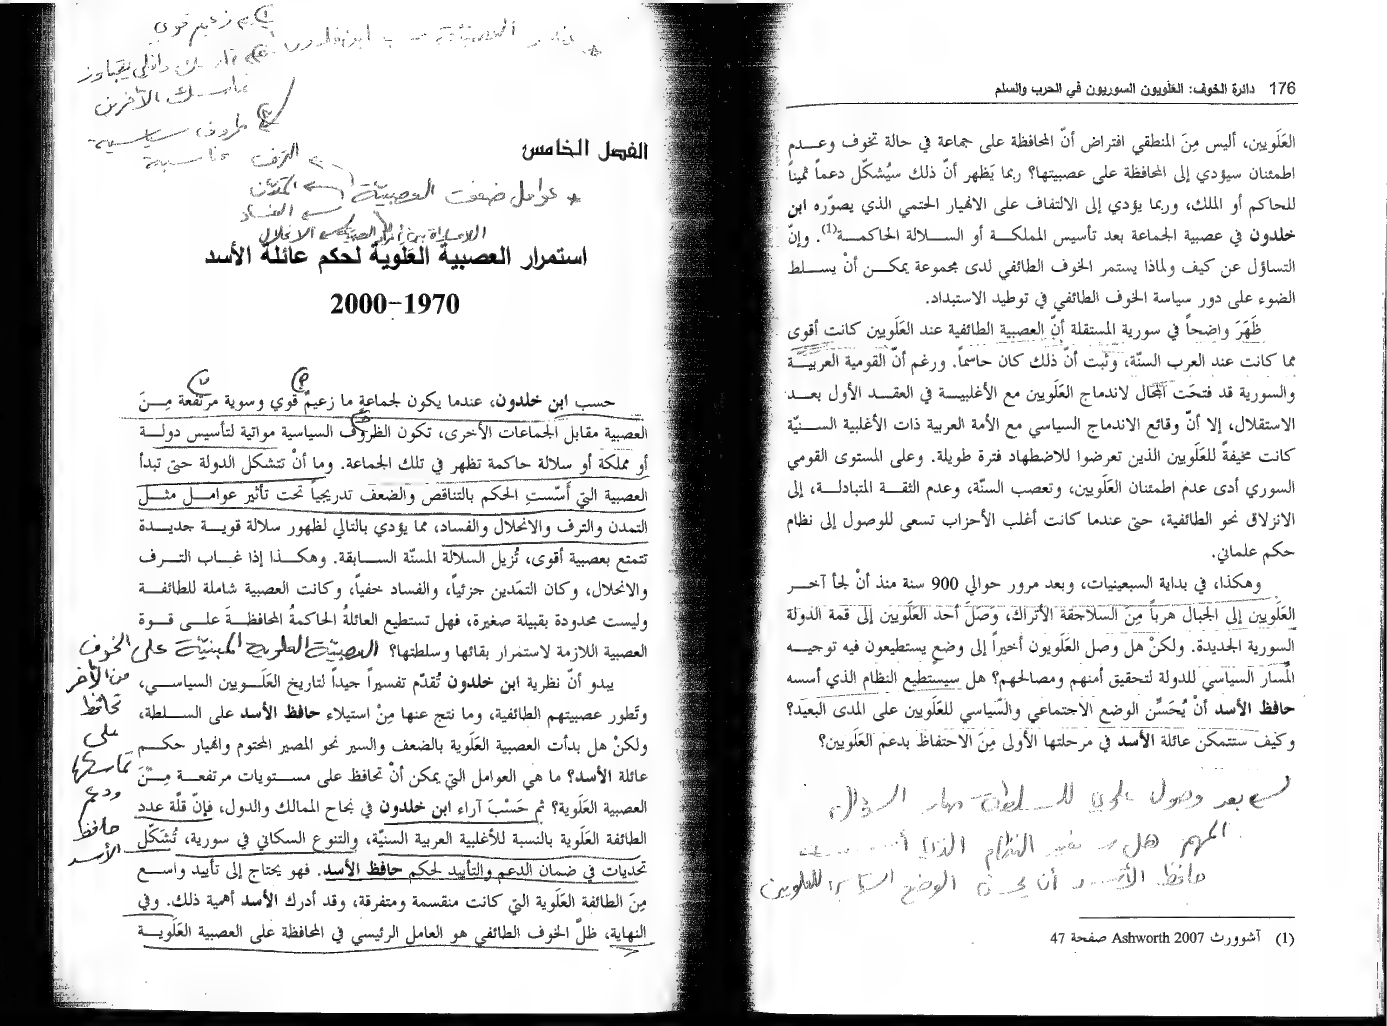 176 دائرة الخوف: العَلَويون السوريون في الحرب والسلم
العَلَويين، أليس مِنَ المنطقي افتراض أنّ المحافظة على جماعة في حالة تخوف وعدم
اطمئنان سيؤدي إلى المحافظة على عصبيتها؟ ربما يَظهر أنّ ذلك سيُشكّل دعماً ثميناً
للحاكم أو الملك، وربما يؤدي إلى الالتفاف على الانهيار الحتمي الذي يصوّره ابن
خلدون في عصبية الجماعة بعد تأسيس المملكة أو السلالة الحاكمة(1). وإنّ
التساؤل عن كيف ولماذا يستمر الخوف الطائفي لدى مجموعة يمكن أنْ يسلط
الضوء على دور سياسة الخوف الطائفي في توطيد الاستبداد.
ظَهَرَ واضحاً في سورية المستقلة أنّ العصبية الطائفية عند العَلَويين كانت أقوى
مما كانت عند العرب السنّة، وثبت أنّ ذلك كان حاسماً. ورغم أنّ القومية العربية
والسورية قد فتحَت المجال لاندماج العَلَويين مع الأغلبية في العقد الأول بعد
الاستقلال، إلا أنّ وقائع الاندماج السياسي مع الأمة العربية ذات الأغلبية السنيّة
كانت مخيفةً للعَلَويين الذين تعرضوا للاضطهاد فترة طويلة. وعلى المستوى القومي
السوري أدى عدم اطمئنان العَلَويين، وتعصب السنّة، وعدم الثقة المتبادلة، إلى
الانزلاق نحو الطائفية، حتى عندما كانت أغلب الأحزاب تسعى للوصول إلى نظام
حكم علماني.
وهكذا، في بداية السبعينيات، وبعد مرور حوالي 900 سنة منذ أنْ لجأ آخر
العَلَويين إلى الجبال هرباً مِنَ السلاجقة الأتراك، وَصَلَ أحد العَلَويين إلى قمة الدولة
السورية الجديدة. ولكنْ هل وصل العَلَويون أخيراً إلى وضع يستطيعون فيه توجيه
المسار السياسي للدولة لتحقيق أمنهم ومصالحهم؟ هل سيستطيع النظام الذي أسسه
حافظ الأسد أنْ يُحَسِّن الوضع الاجتماعي والسّياسي للعَلَويين على المدى البعيد؟
وكيف ستتمكن عائلة الأسد في مرحلتها الأولى مِنَ الاحتفاظ بدعم العَلَويين؟
بعد وصول علوي للسلطة السؤال
المهم هل النظام الذي
حافظ الأسد أن يحسن الوضع للعلويين
(1) آشوورث Ashworth 2007 صفحة 47
زعيم قوي
العصبية ابن خلدون
يتجاوز
تماسك الآخرين
ظروف سياسية
مناسبة
الفصل الخامس
الترف
* عوامل ضعف العصبيّة التمدّن
الفساد
الانحلال
استمرار العصبية العَلَوية لحكم عائلة الأسد
1970–2000
حسب ابن خلدون، عندما يكون لجماعةٍ ما زعيمٌ قوي وسوية مرتفعة مِنَ
العصبية مقابل الجماعات الأخرى، تكون الظروف السياسية مواتية لتأسيس دولة
أو مملكة أو سلالة حاكمة تظهر في تلك الجماعة. وما أنْ تتشكل الدولة حتى تبدأ
العصبية التي أسّستِ الحكم بالتناقص والضعف تدريجياً تحت تأثير عوامل مثل
التمدن والترف والانحلال والفساد، مما يؤدي بالتالي لظهور سلالة قوية جديدة
تتمتع بعصبية أقوى، تُزيل السلالة المسنّة السابقة. وهكذا إذا غاب الترف
والانحلال، وكان التمَدين جزئياً، والفساد خفياً، وكانت العصبية شاملة للطائفة
وليست محدودة بقبيلة صغيرة، فهل تستطيع العائلةُ الحاكمةُ المحافظةَ على قوة
العصبية اللازمة لاستمرار بقائها وسلطتها؟ العصبيّة العلوية المبنيّة على الخوف
من الآخر
تحافظ
على
تماسكها
ودعم
حافظ
الأسد
يبدو أنّ نظرية ابن خلدون تُقدّم تفسيراً جيداً لتاريخ العَلَويين السياسي،
وتَطور عصبيتهم الطائفية، وما نتج عنها مِنْ استيلاء حافظ الأسد على السلطة،
ولكنْ هل بدأت العصبية العَلَوية بالضعف والسير نحو المصير المحتوم وانهيار حكم
عائلة الأسد؟ ما هي العوامل التي يمكن أنْ تحافظ على مستويات مرتفعة مِنَ
العصبية العَلَوية؟ ثم حَسْبَ آراء ابن خلدون في نجاح الممالك والدول، فإنّ قلّة عدد
الطائفة العَلَوية بالنسبة للأغلبية العربية السنيّة، والتنوع السكاني في سورية، تُشَكّل
تحديات في ضمان الدعم والتأييد لحكم حافظ الأسد. فهو يحتاج إلى تأييد واسع
مِنَ الطائفة العَلَوية التي كانت منقسمة ومتفرقة، وقد أدرك الأسد أهمية ذلك. وفي
النهاية، ظلّ الخوف الطائفي هو العامل الرئيسي في المحافظة على العصبية العَلَوية